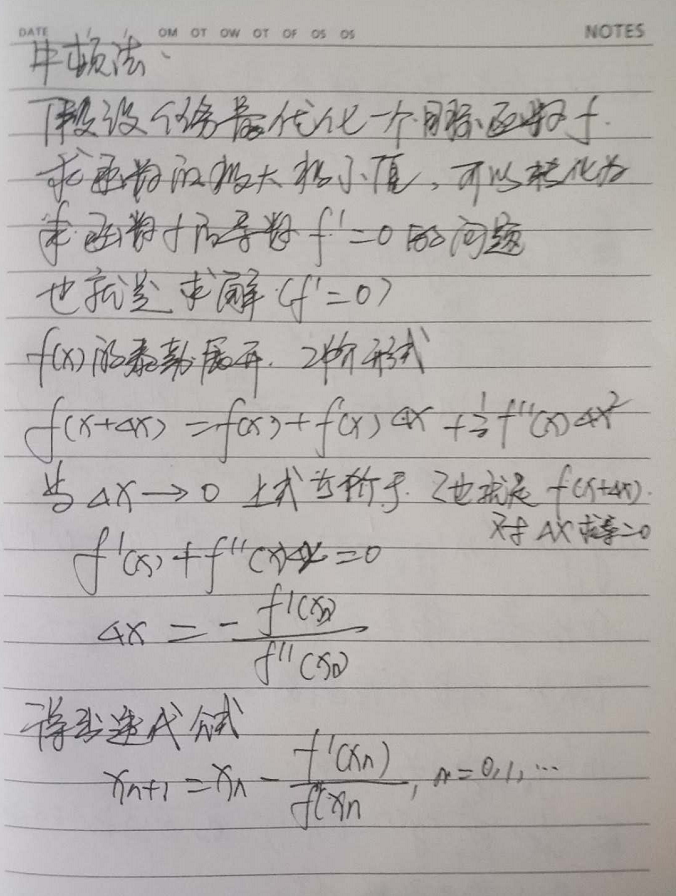 DATE / / OM OT OW OT OF OS OS NOTES
牛顿法、
假设任务是优化一个目标函数 f.
求函数的极大极小值,可以转化为
求函数 f 的导数 f'=0 的问题
也就是求解 (f'=0)
f(x) 的泰勒展开. 2阶形式
f(x+Δx) = f(x) + f'(x) Δx + 1/2 f''(x) Δx²
当 Δx → 0 上式等价于 (也就是 f(x+Δx).
对 Δx 求导=0
f'(x) + f''(x)Δx = 0
Δx = - f'(xn) / f''(xn)
得到迭代公式
xn+1 = xn - f'(xn) / f''(xn , n=0,1,…